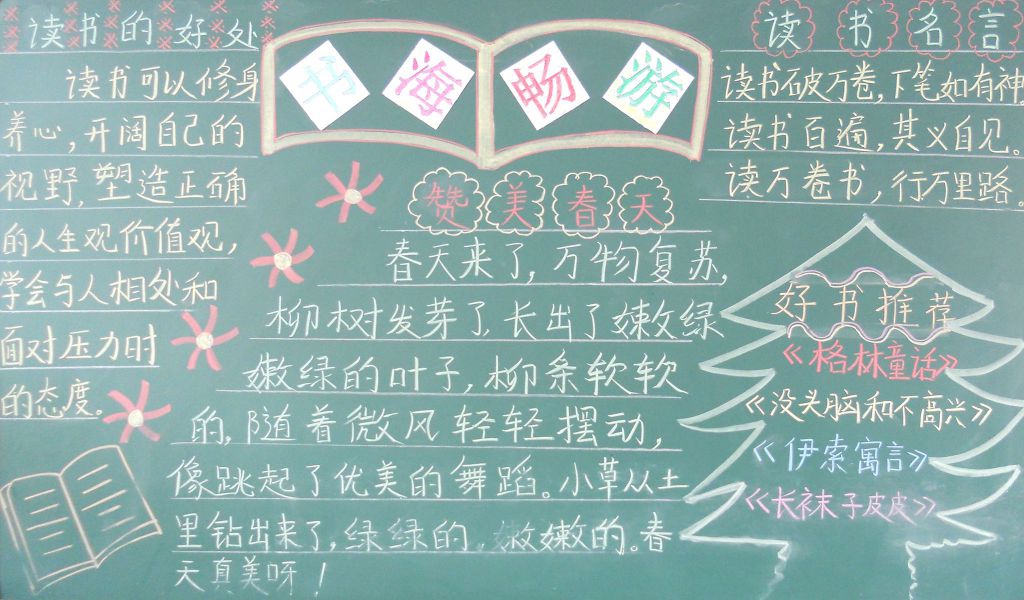 读书的好处
读书可以修身
养心，开阔自己的
视野，塑造正确
的人生观价值观，
学会与人相处和
面对压力时
的态度。
书海畅游
赞美春天
春天来了，万物复苏，
柳树发芽了，长出了嫩绿
嫩绿的叶子，柳条软软
的，随着微风轻轻摆动，
像跳起了优美的舞蹈。小草从土
里钻出来了，绿绿的，嫩嫩的。春
天真美呀！
读书名言
读书破万卷，下笔如有神
读书百遍，其义自见。
读万卷书，行万里路。
好书推荐
《格林童话》
《没头脑和不高兴》
《伊索寓言》
《长袜子皮皮》